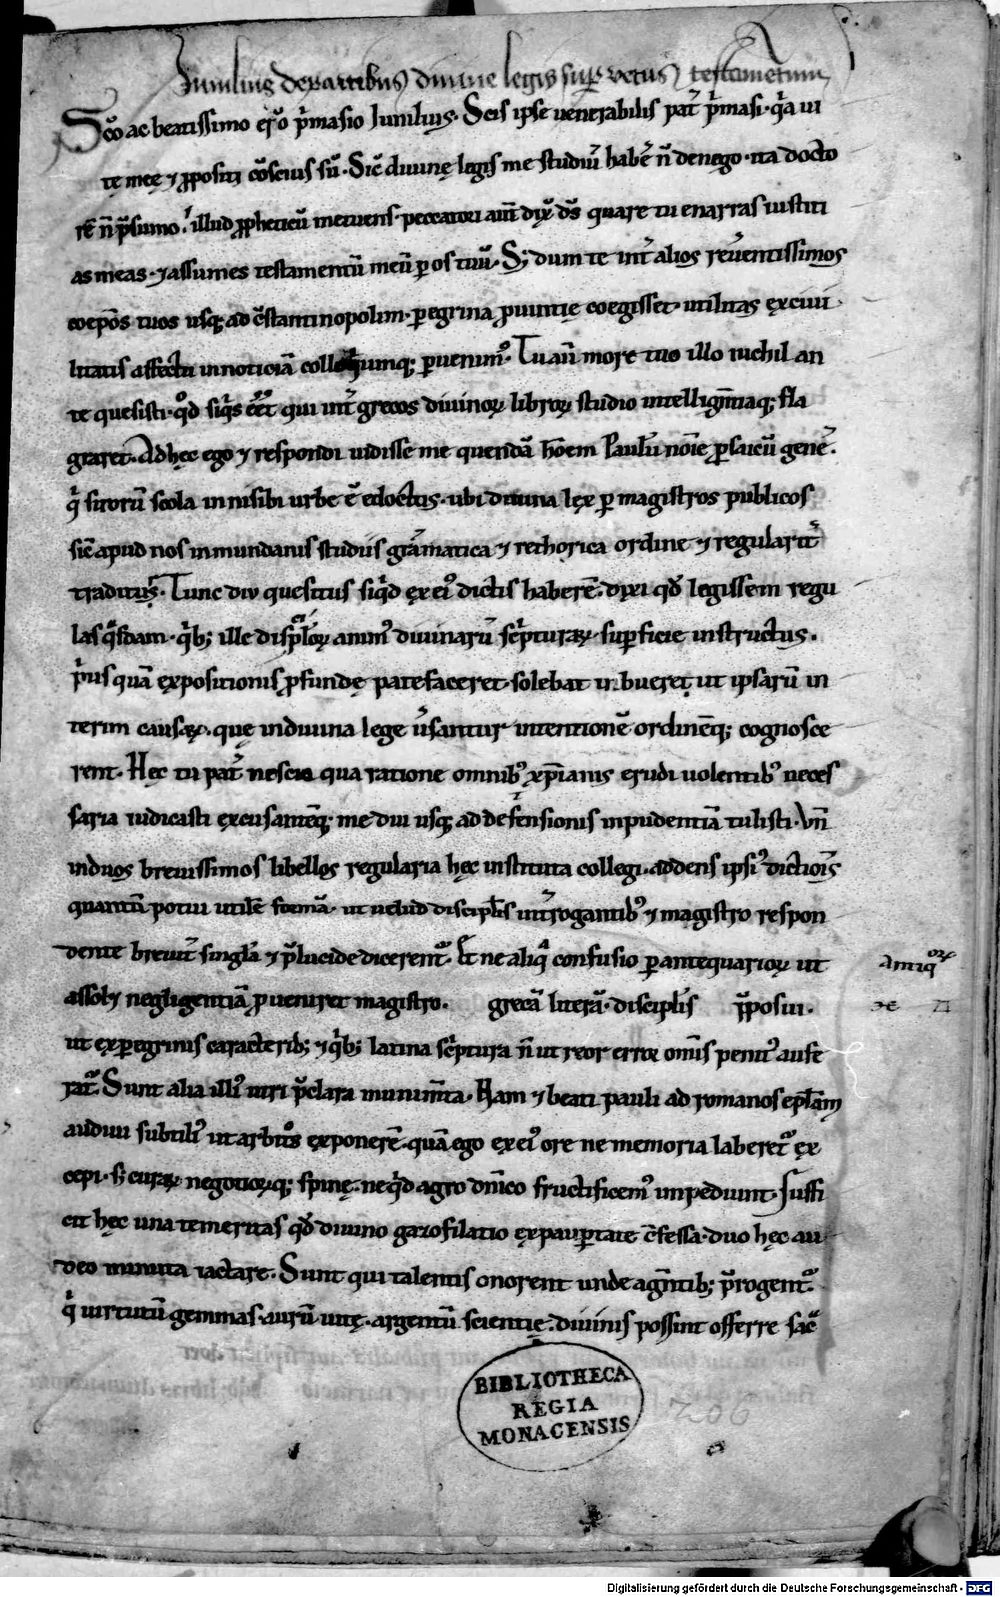 Iunilius de partibus divine legis sup vetus testamentum
Sc̄o ac beatissimo ep̄o p̄masio Iunilius. Scis ipse uenerabilis pat̄ p̄masi. q̄a ui
tę meę ⁊ p̄positi cōscius sū. Sic̄ diuinę legis me studiū habe n̄ denego. ita docto
rē n̄ p̄sumo. illud p̄pheticū metuens. peccatori aut̄ dix̄ d̄s quare tu enarras iustiti
as meas. ⁊ assumes testamentū meū p os tuū. S; dum te int̄ alios reuerentissimos
coep̄os tuos usq; ad c̄stantinopolim. peregrina prouintię coegisset. utilitas ex ciui
litatis affectu in noticiā colloquiumq; peruenim᷒. Tu aū more tuo illo nichil an
te quesisti. qd̄ siq̄s eēt qui int̄ grecos diuinoꝝ libroꝝ studio intelligentiaq; fla
graret. Ad hęc ego ⁊ respondi uidisse me quendā hoēm Paulū noīe persaicū gene.
q̄ siroꝝ scola in nisibi urbe ē edoctus. ubi diuina lex p magistros publicos
sic̄ apud nos in mundanis studiis grāmatica ⁊ rethorica ordine ⁊ regularit̄
traditur. Tunc diu quesitus siq̄d ex ei᷒ dictis haberē. dixi qd̄ legissem regu
las q̄sdam. q̄b; ille discip̄loꝝ anim᷒ diuinarū sc̄pturaꝝ superficie instructus.
p̄us quā expositionis pfundę patefaceret. solebat inbueret ut ipsarū in
terim causaꝝ. quę in diuina lege ūsantur intentionē ordinēq; cognosce
rent. Hęc tu pat̄ nescio qua ratione omnib᷒ xp̄ianis erudi uolentib᷒ neces
saria iudicasti excusantēq; me diu usq; ad defensionis inpudentiā tulisti. Vn̄
in duos breuissimos libellos regularia hęc instituta collegi. addens ipsi᷒ dictiōis
quantū potui utilē formā. ut uelud discipl̄is int̄rogantib᷒ ⁊ magistro respon
dente breuit̄ singl̄a ⁊ p̄lucide dicerent̄. Et ne aliq̄ confusio p antequarioꝝ ut antiq̄oꝝ
assolꝫ negligentiā pueniret magistro. grecā literā. discipl̄is p̄posui.
ut ex peregrinis caracterib; ⁊ q̄b; latina sc̄ptura n̄ ut reor error om̄is penit᷒ aufe
rat̄. Sunt alia illi᷒ uiri p̄clara munim̄ta. Nam ⁊ beati pauli ad romanos ep̄lam
audiui subtili᷒ ut arbitror exponerē. quā ego ex ei᷒ ore ne memoria laberet̄ ex
cepi. s; curaꝝ negotioꝝq; spinę. neq̄d agro dn̄ico fructificem᷒ impediunt. Suffi
cit hęc una temeritas qd̄ diuino gazofilatio ex paup̄tate c̄fessa. duo hęc au
deo minuta iactare. Sunt qui talentis onorent unde agentib; p̄rogent̄.
q̄ uirtutū gemmas. aurū uitę. argentū scientię. diuinis possint offerre sac̄
BIBLIOTHECA
REGIA
MONACENSIS
206
Digitalisierung gefördert durch die Deutsche Forschungsgemeinschaft - DFG